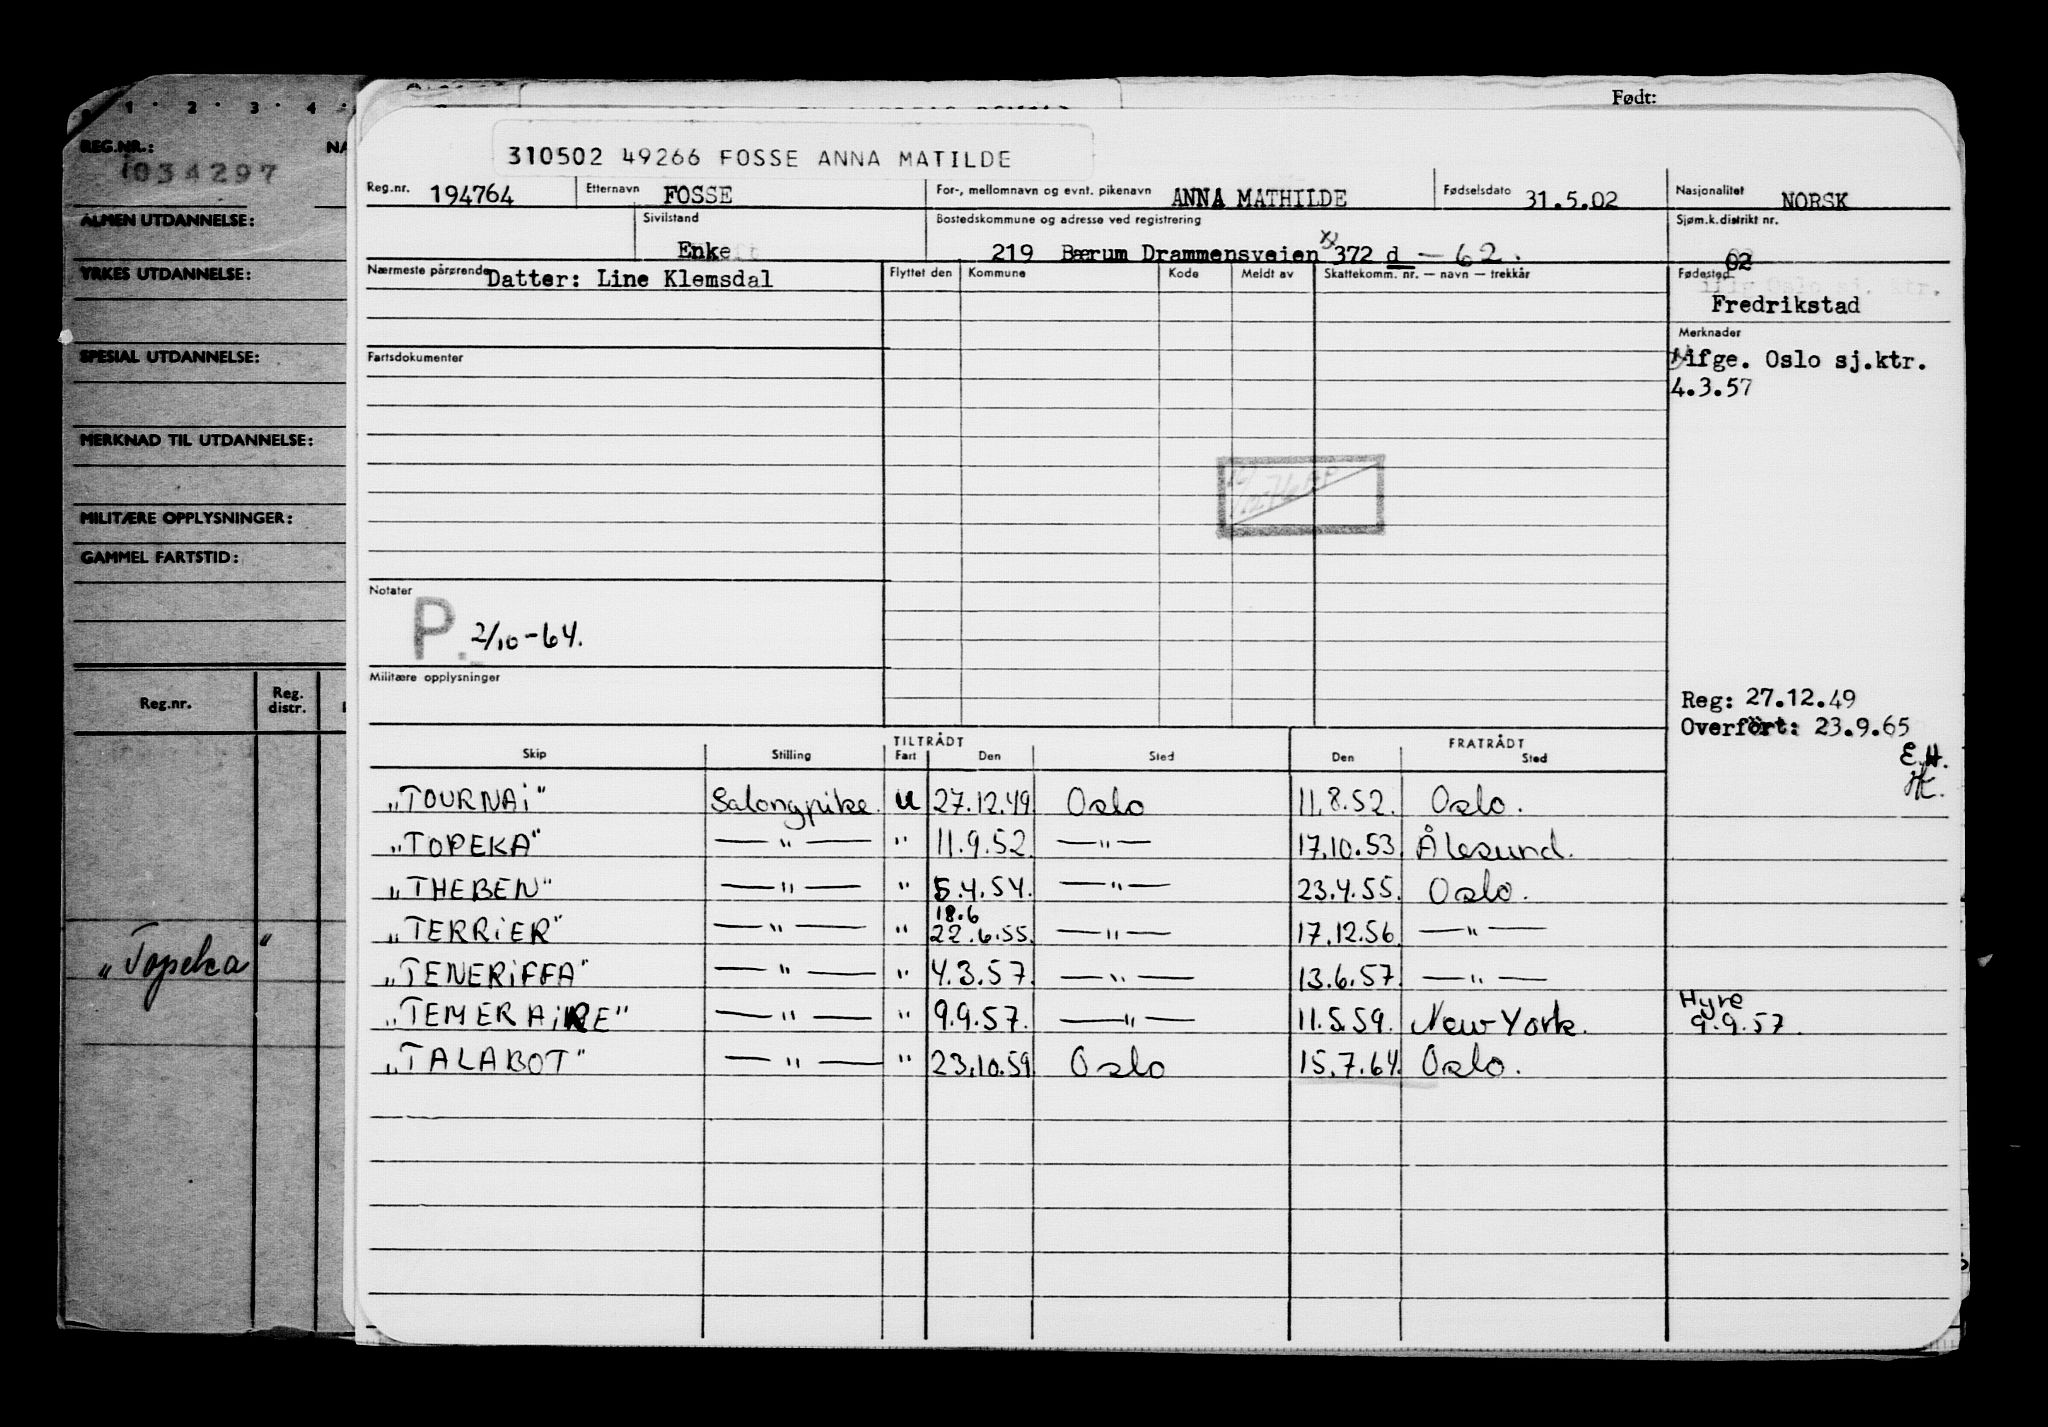 1 · 2 · 3 · 4
REG.NR.:
1034297
ALMEN UTDANNELSE:
YRKES UTDANNELSE:
SPESIAL UTDANNELSE:
MERKNAD TIL UTDANNELSE:
MILITÆRE OPPLYSNINGER:
GAMMEL FARTSTID:
Reg.nr. Reg. distr.
„Topeka"
Født:
310502 49266 FOSSE ANNA MATILDE
Reg.nr. 194764 Etternavn FOSSE For-, mellomnavn og evnt. pikenavn ANNA MATHILDE Fødselsdato 31.5.02 Nasjonalitet NORSK
Sivilstand Bostedskommune og adresse ved registrering Sjøm.k.distrikt nr.
Enke 219 Bærum Drammensveien x) 372 d — 62. 02
Nærmeste pårørende Datter: Line Klemsdal Flyttet den Kommune Kode Meldt av Skattekomm. nr. — navn — trekkår Fødested
Fredrikstad
Merknader
x) ifge. Oslo sj.ktr.
4.3.57
Fartsdokumenter
Notater
P. 2/10-64.
Militære opplysninger
Reg: 27.12.49
Overført: 23.9.65
E.H.
HK.
TILTRÅDT FRATRÅDT
Skip Stilling Fart Den Sted Den Sted
„TOURNAi" Salongpike. U 27.12.49. Oslo 11.8.52. Oslo.
„TOPEKA" —"— " 11.9.52. —"— 17.10.53. Ålesund.
„THEBEN" —"— " 5.4.54. —"— 23.4.55. Oslo.
18.6
„TERRiER" —"— " 22.6.55. —"— 17.12.56. —"—
„TENERiFFA" —"— " 4.3.57. —"— 13.6.57. —"—
„TEMERAiRE" —"— " 9.9.57. —"— 11.5.59. New York. Hyre
9.9.57.
„TALABOT" —"— " 23.10.59. Oslo 15.7.64. Oslo.